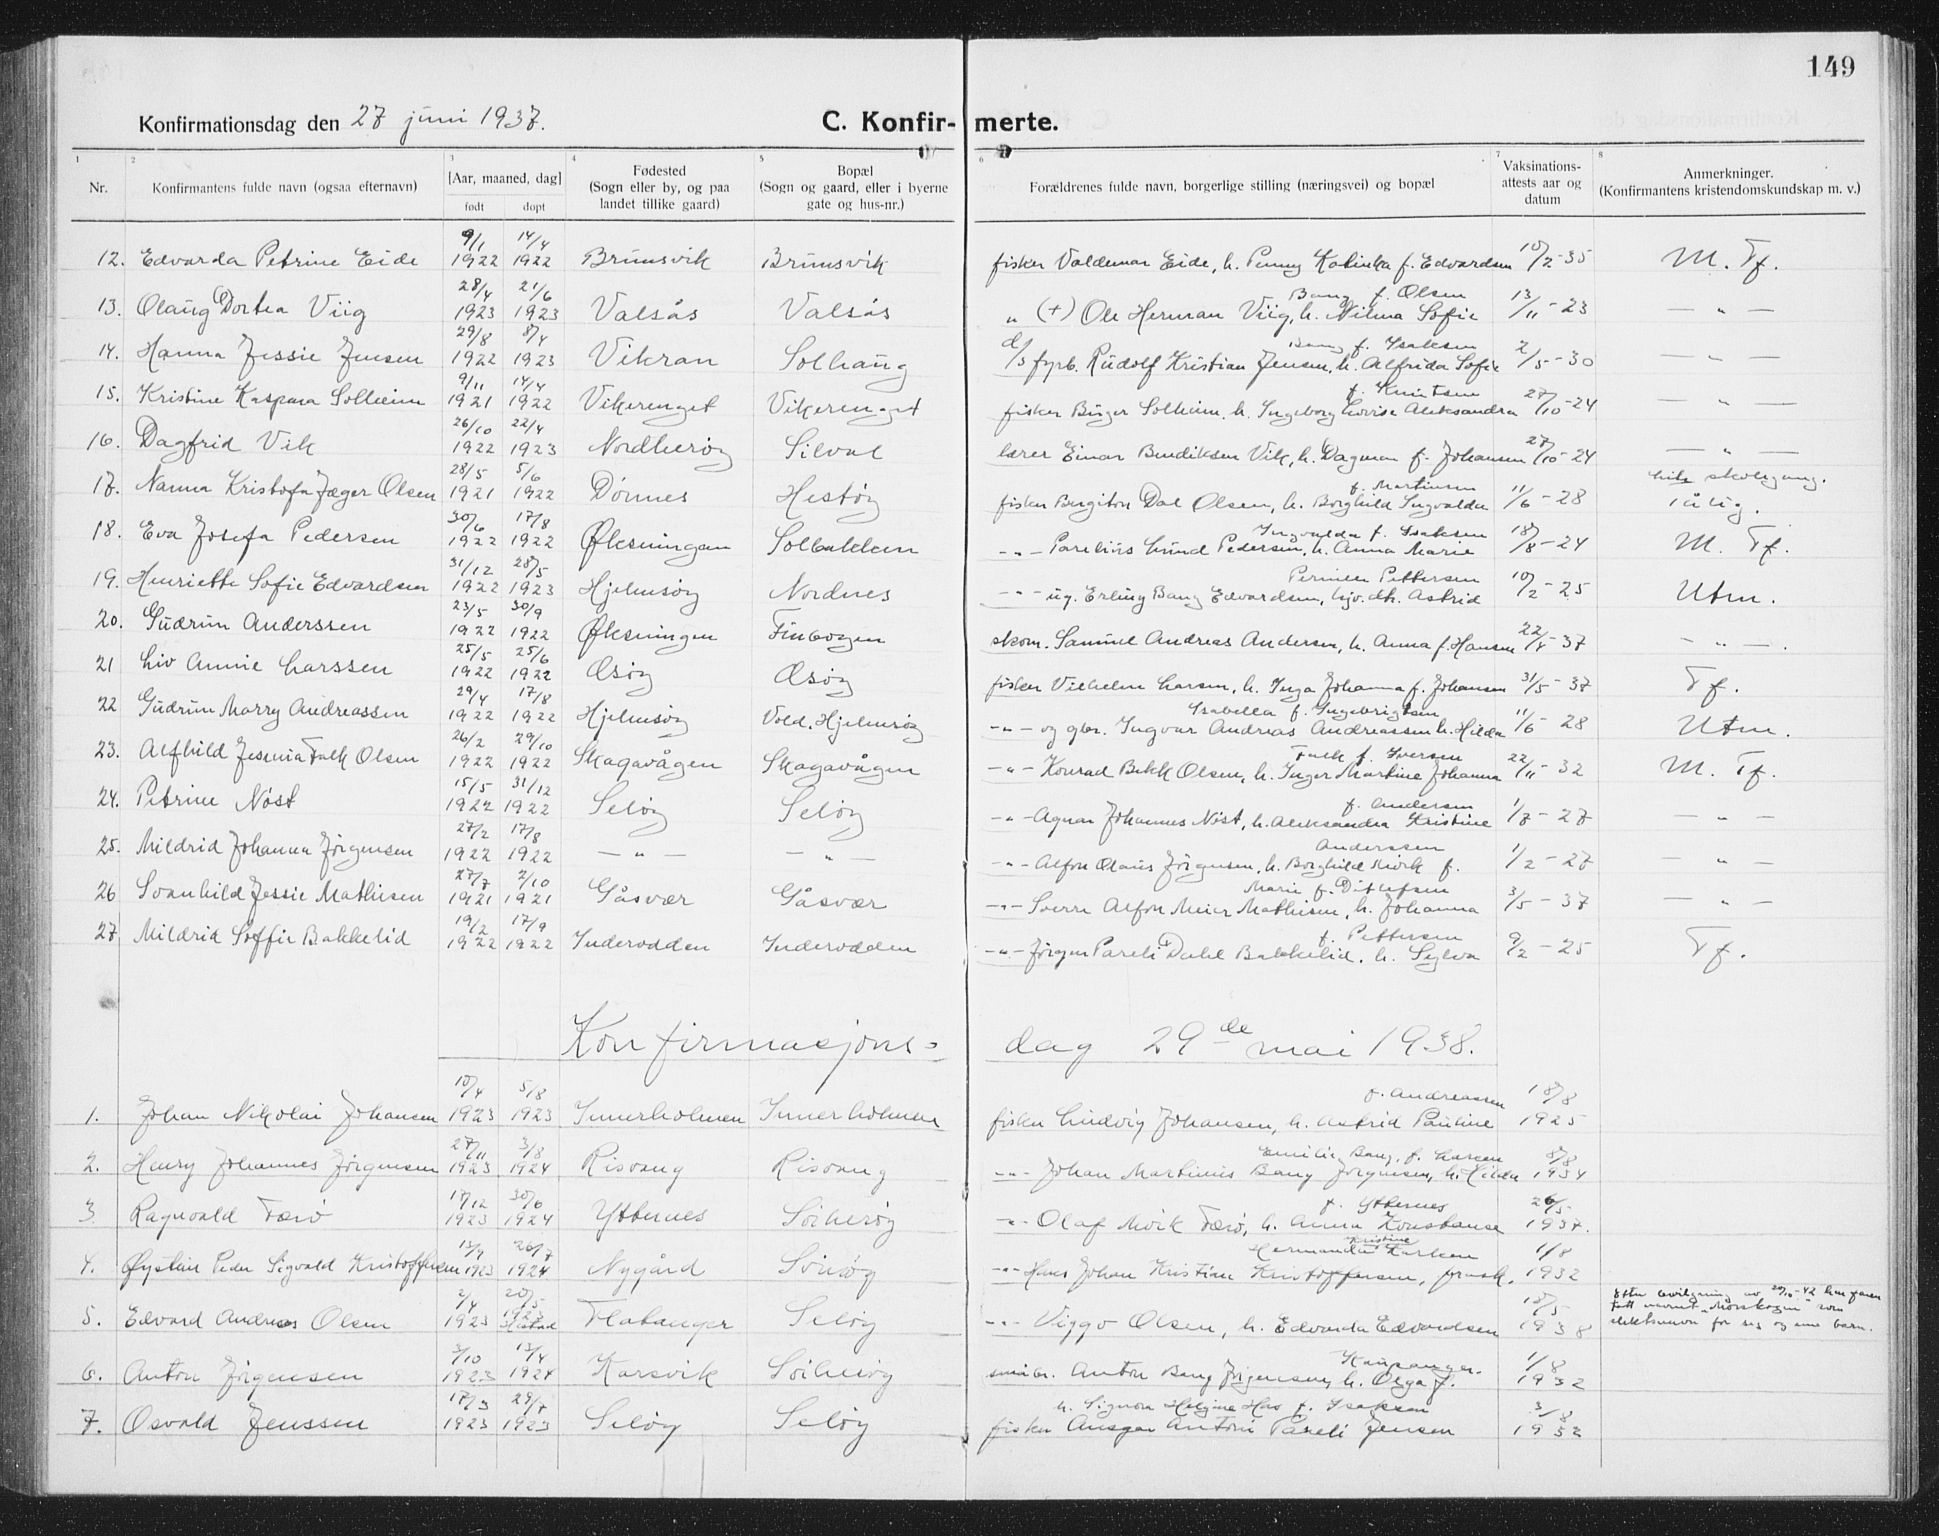 149
Konfirmationsdag den 27 juni 1937. C. Konfir- merte.
1 2 3 4 5 6 7 8
Nr. Konfirmantens fulde navn (ogsaa efternavn) [Aar, maaned, dag] født døpt Fødested (Sogn eller by, og paa landet tillike gaard) Bopæl (Sogn og gaard, eller i byerne gate og hus-nr.) Forældrenes fulde navn, borgerlige stilling (næringsvei) og bopæl Vaksinations-attests aar og datum Anmerkninger. (Konfirmantens kristendomskundskap m. v.)
12. Edvarda Petrine Eide 9/1 1922 14/4 1922 Brunsvik Brunsvik fisker Valdemar Eide, h. Penny Katinka f. Edvardsen 10/2-35 M. Tf.
13. Olaug Dortea Viig 28/4 1923 21/6 1923 Valsås Valsås " (+) Ole Herman Viig, h. Nilma Sofie Bang f. Olsen 13/11-23 — " —
14. Hanna Jessie Jensen 29/8 1922 8/4 1923 Vikran Solhaug d/s fyrb. Rudolf Kristian Jensen, h. Alfrida Sofie Bang f. Isaksen 2/5-30 — " —
15. Kristine Kaspara Solheim 9/11 1921 14/4 1922 Vikerenget Vikerenget fisker Birger Solheim, h. Ingeborg Lovise Aleksandra f. Knutsen 27/10-24 — " —
16. Dagfrid Vik 26/10 1922 22/4 1923 Nordherøy Silval lærer Einar Bendiksen Vik, h. Dagmar f. Johansen 27/10-24 — " —
17. Nanna Kristofa Jæger Olsen 28/5 1921 5/6 1922 Dønnes Hestøy fisker Bergiton Dal Olsen, h. Borghild Ingvalda f. Martinsen 11/6-28 lite skolegang. låtig.
18. Eva Josefa Pedersen 30/6 1922 17/8 1922 Øksningan Solbakken -"- Parelius Lund Pedersen, h. Anna Marie Ingvalda f. Isaksen 18/8-24 M. Tf.
19. Henriette Sofie Edvardsen 31/12 1922 28/5 1923 Hjelmsøy Nordnes -"- ug. Erling Bang Edvardsen, hjv. dtr. Astrid Pernelle Pettersen 10/2-25 Utm.
20. Gudrun Anderssen 23/5 1922 30/9 1922 Øksningen Finvogen skom. Samuel Andreas Andersen, h. Anna f. Hansen 22/4-37 — " —.
21 Liv Annie Larssen 25/5 1922 25/6 1922 Øsøy Øsøy fisker Vilhelm Larsen, h. Inga Johanna f. Johansen 31/5-37 Tf.
22 Gudrun Marry Andreassen 29/4 1922 17/8 1922 Hjelmsøy Vold, Hjelmsøy -"- og gbr. Ingvar Andreas Andreassen h. Hilda Isabella f. Ingebrigtsen 11/6-28 Utm.
23. Alfhild Jesenia Falk Olsen 26/2 1922 29/10 1922 Skagavågen Skagavågen -"- Konrad Bekk Olsen, h. Inger Martine Johanna Falk f. Iversen 22/11-32 M. Tf.
24. Petrine Nøst 15/5 1922 31/12 1922 Seløy Seløy -"- Agnar Johannes Nøst, h. Aleksandra Kristine f. Andersen 1/7-27 — " —
25. Mildrid Johanna Jørgensen 27/2 1922 17/8 1922 — " — — " — -"- Alfon Olaus Jørgensen, h. Borghild Kvirk f. Anderssen 1/2-27 — " —
26 Svanhild Jessie Mathisen 27/7 1921 2/10 1921 Gåsvær Gåsvær -"- Sverre Alfon Meier Mathisen, h. Johanna Marie f. Ditlefsen 3/5-37 — " —
27 Mildrid Soffie Bakkelid 19/2 1922 17/9 1922 Indervodden Indervodden -"- Jørgen Pareli Dahl Bakkelid, h. Sylva f. Pettersen 9/2-25 Tf.
Konfirmasjons= dag 29de mai 1938.
1. Johan Nikolai Johansen 10/4 1923 5/8 1923 Innerholmen Innerholmen fisker Ludvig Johansen, h. Astrid Pauline f. Andreassen 18/8 1925
2. Henry Johannes Jørgensen 27/11 1923 3/8 1924 Risvang Risvang -"- Johan Martinus Bang Jørgensen, h. Hilda Emilie Bang, f. Larsen 8/8 1934
3 Ragnvald Færø 17/12 1923 30/6 1924 Ytternes Sørherøy -"- Olaf Mvik Færø, h. Anna Konstanse f. Ytternes 26/5 1937.
4. Øystein Peder Sigvald Kristoffersen 13/9 1923 20/7 1924 Nygård Sørisøy -"- Hans Johan Kristian Kristoffersen, frask. Hermanda Kristine Karlsen 1/8 1932
5. Edvard Andreas Olsen 2/4 1923 20/5 1923 Flatanger Seløy -"- Viggo Olsen, h. Edvarda Edvardsen 18/5 1938 Etter bevilgning av 20/10-42 har faren tatt navnet "Morskogen" som slektsnavn for seg og sine barn.
6. Anton Jørgensen 3/10 1923 13/4 1924 Karsvik Sørherøy småbr. Anton Bang Jørgensen, h. Olga f. Kaupanger. 1/8 1932
7. Osvald Jenssen 17/3 1923 29/7 1923 Seløy Seløy fisker Ansgar Antoni Pareli Jensen h. Signora Helgine Hav f. Isaksen 3/8 1932